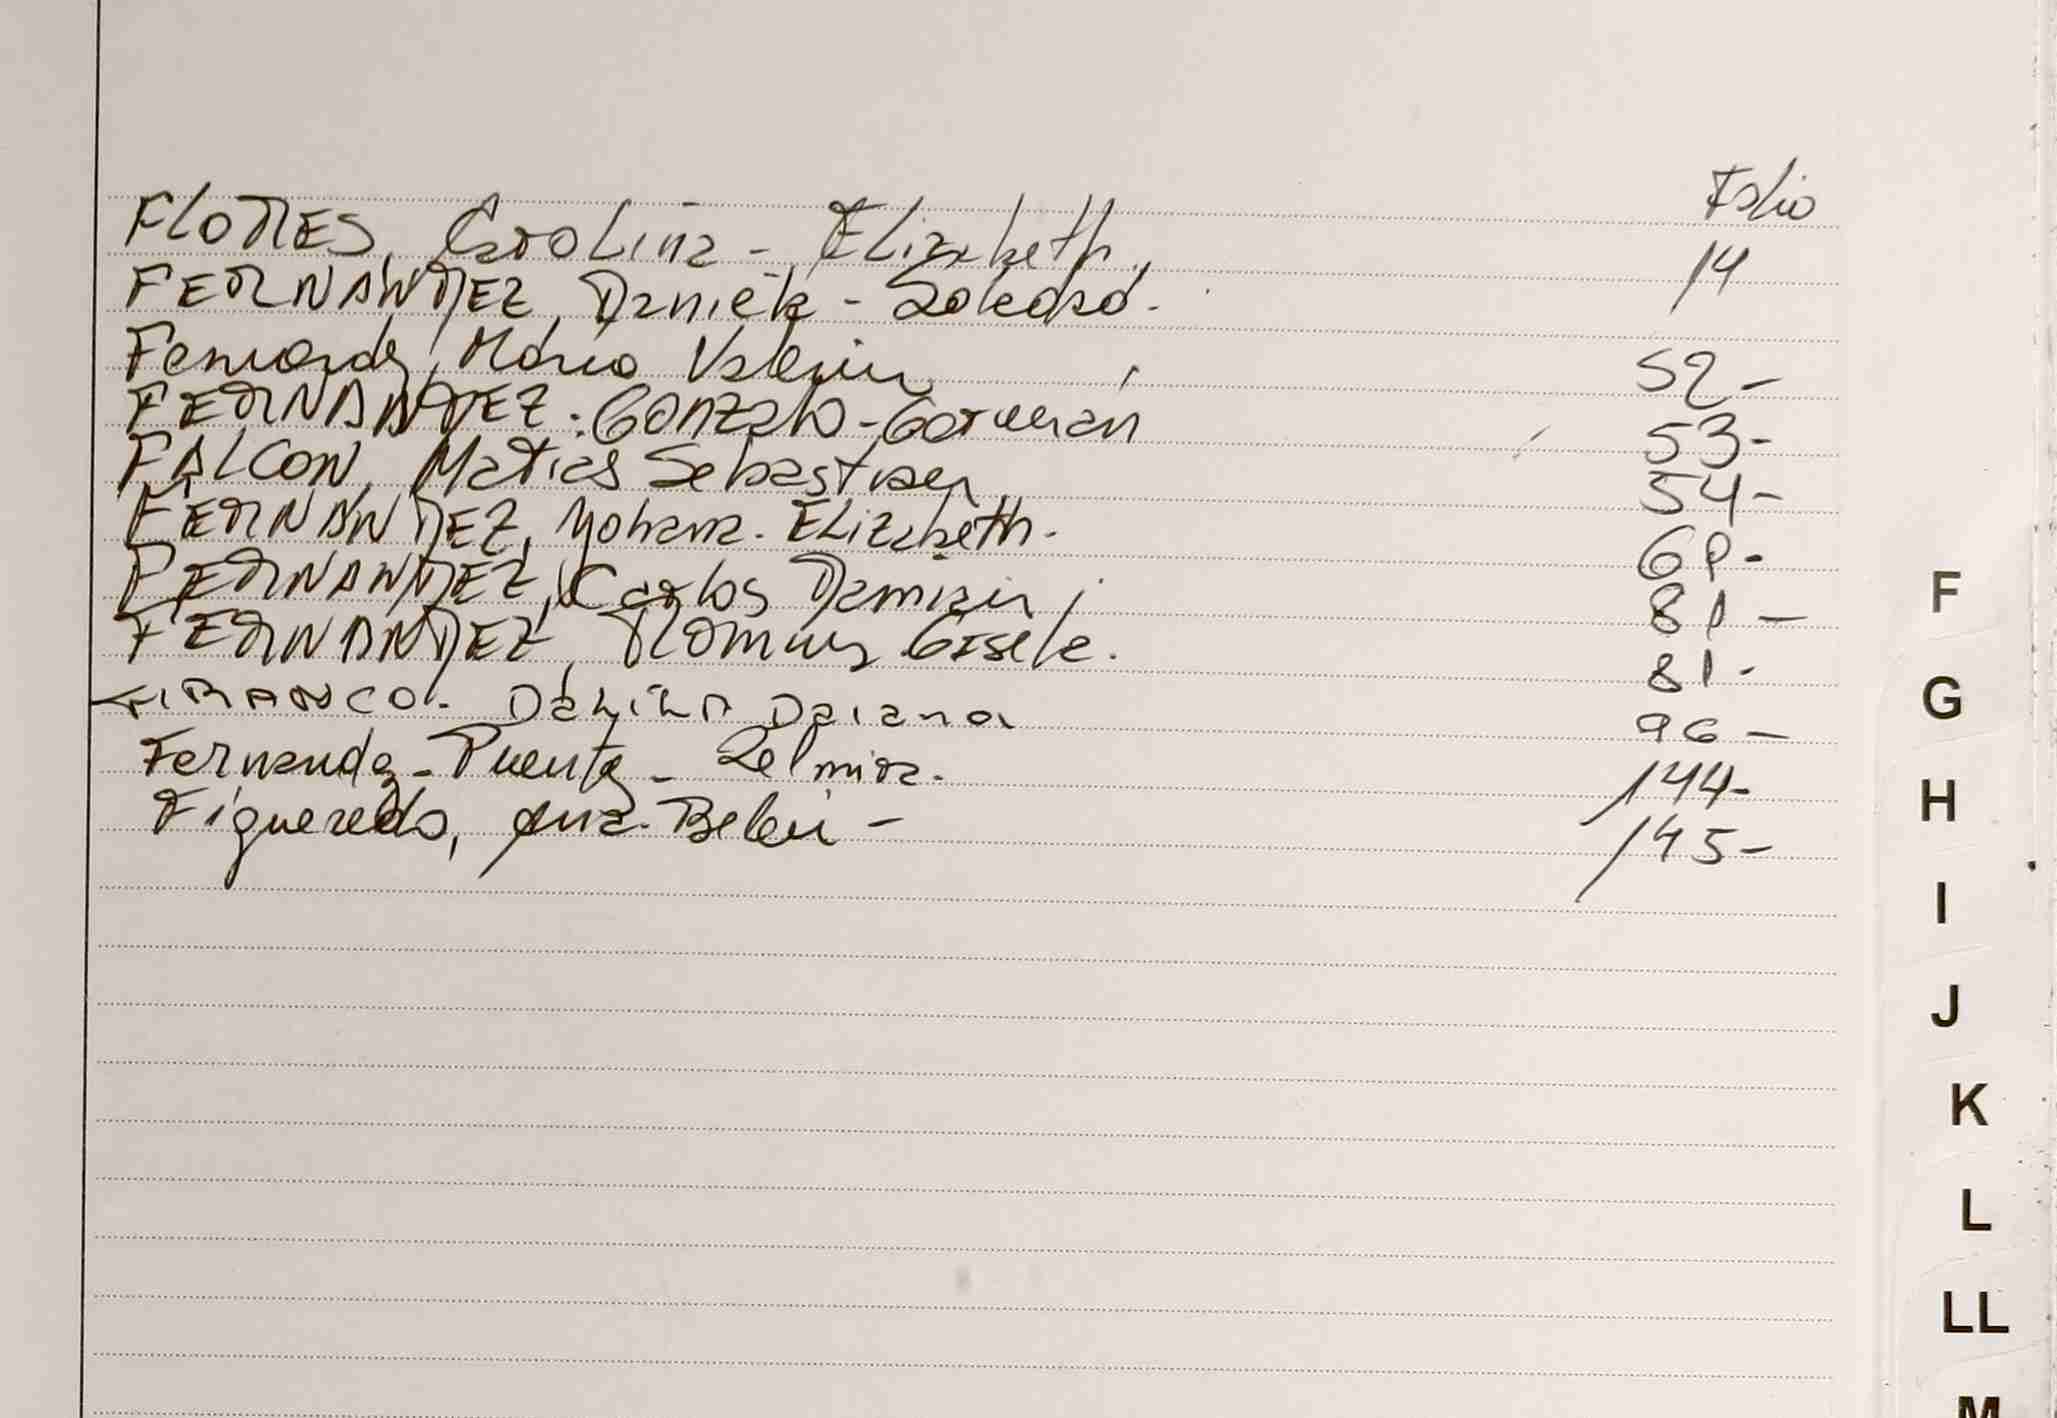 Folio
FLORES, Carolina - Elizabeth, 14
FERNANDEZ, Daniela - Soledad.
Fernandez, María Valeria 52-
FERNANDEZ. Gonzalo - German 53-
FALCON, Matias Sebastian 54-
FERNANDEZ, Yohana. Elizabeth. 60-
FERNANDEZ, Carlos Damian, 81-
FERNANDEZ, Romina Gisele. 81-
FRANCO. Dahiana Daiana 96-
Fernandez - Puente - Zelmira. 144-
Figueredo, Ana Belén - 145-
F
G
H
I
J
K
L
LL
M